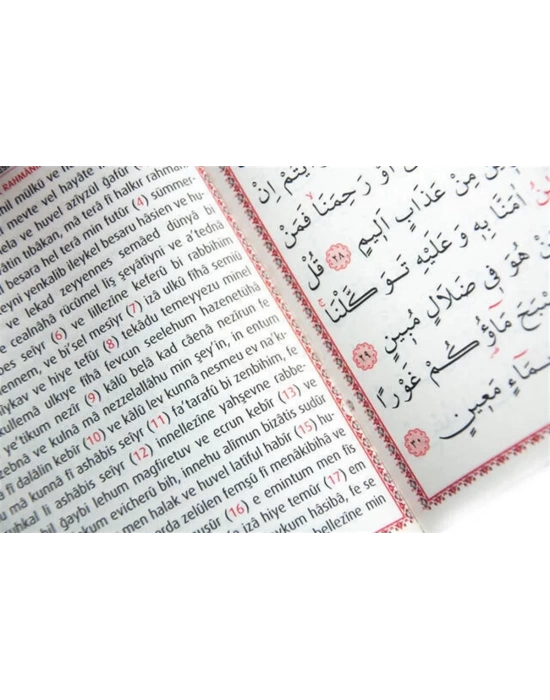 RAHMAN
mil mülkü ve
meyte vel hayate
ve huvel azîyzül ğafûr
tıbâkan, mâ terâ fî halkır rahmân
besara hel terâ min futûr (4) sümmer-
yenkalib ileykel besaru hâsien ve hu-
ve lekad zeyyennes semâed dünyâ bi
ve cealnâhâ rücûmel liş şeyâtîyni ve a'tednâ
seîyr (6) ve lillezîne keferû bi rabbihim
ve bi'sel mesîyr (7) izâ ulkû fîhâ semiû
ve hiye tefûr (8) tekâdu temeyyezu minel
kullemâ ulkıye fîhâ fevcun seelehum hazenetühâ
e'tikum nezîr (9) kâlû belâ kad câenâ nezîrun fe
ve kulnâ mâ nezzelallâhu min şey'in, in entum
fî dalâlin kebîr (10) ve kâlû lev kunnâ nesmeu ev na'kı-
mâ kunnâ fî ashâbis seîyr (11) fa'tarafû bi zenbihim, fe
li ashâbis seîyr (12) innellezîne yahşevne rabbe-
bil ğaybi lehum mağfiretuv ve ecrun kebîr (13) ve
evicherû bih, innehu alîmun bizâtis sudûr
men halak ve huvel latîful habîr (15) hu-
zelûlen femşû fî menâkibihâ ve
nuşûr (16) e emintum men fis
izâ hiye temûr (17) em
hâsibâ, fe se
bellezîne min
اِنْ
اَوْ رَحِمَنَا فَمَنْ
مِنْ عَذَابٍ اَلِيمٍ ﴿٢٨﴾ قُلْ
اٰمَنَّا بِهِ وَعَلَيْهِ تَوَكَّلْنَا
هُوَ فِي ضَلَالٍ مُبِينٍ ﴿٢٩﴾
مَاؤُكُمْ غَوْرًا
مَعِينٍ ﴿٣٠﴾